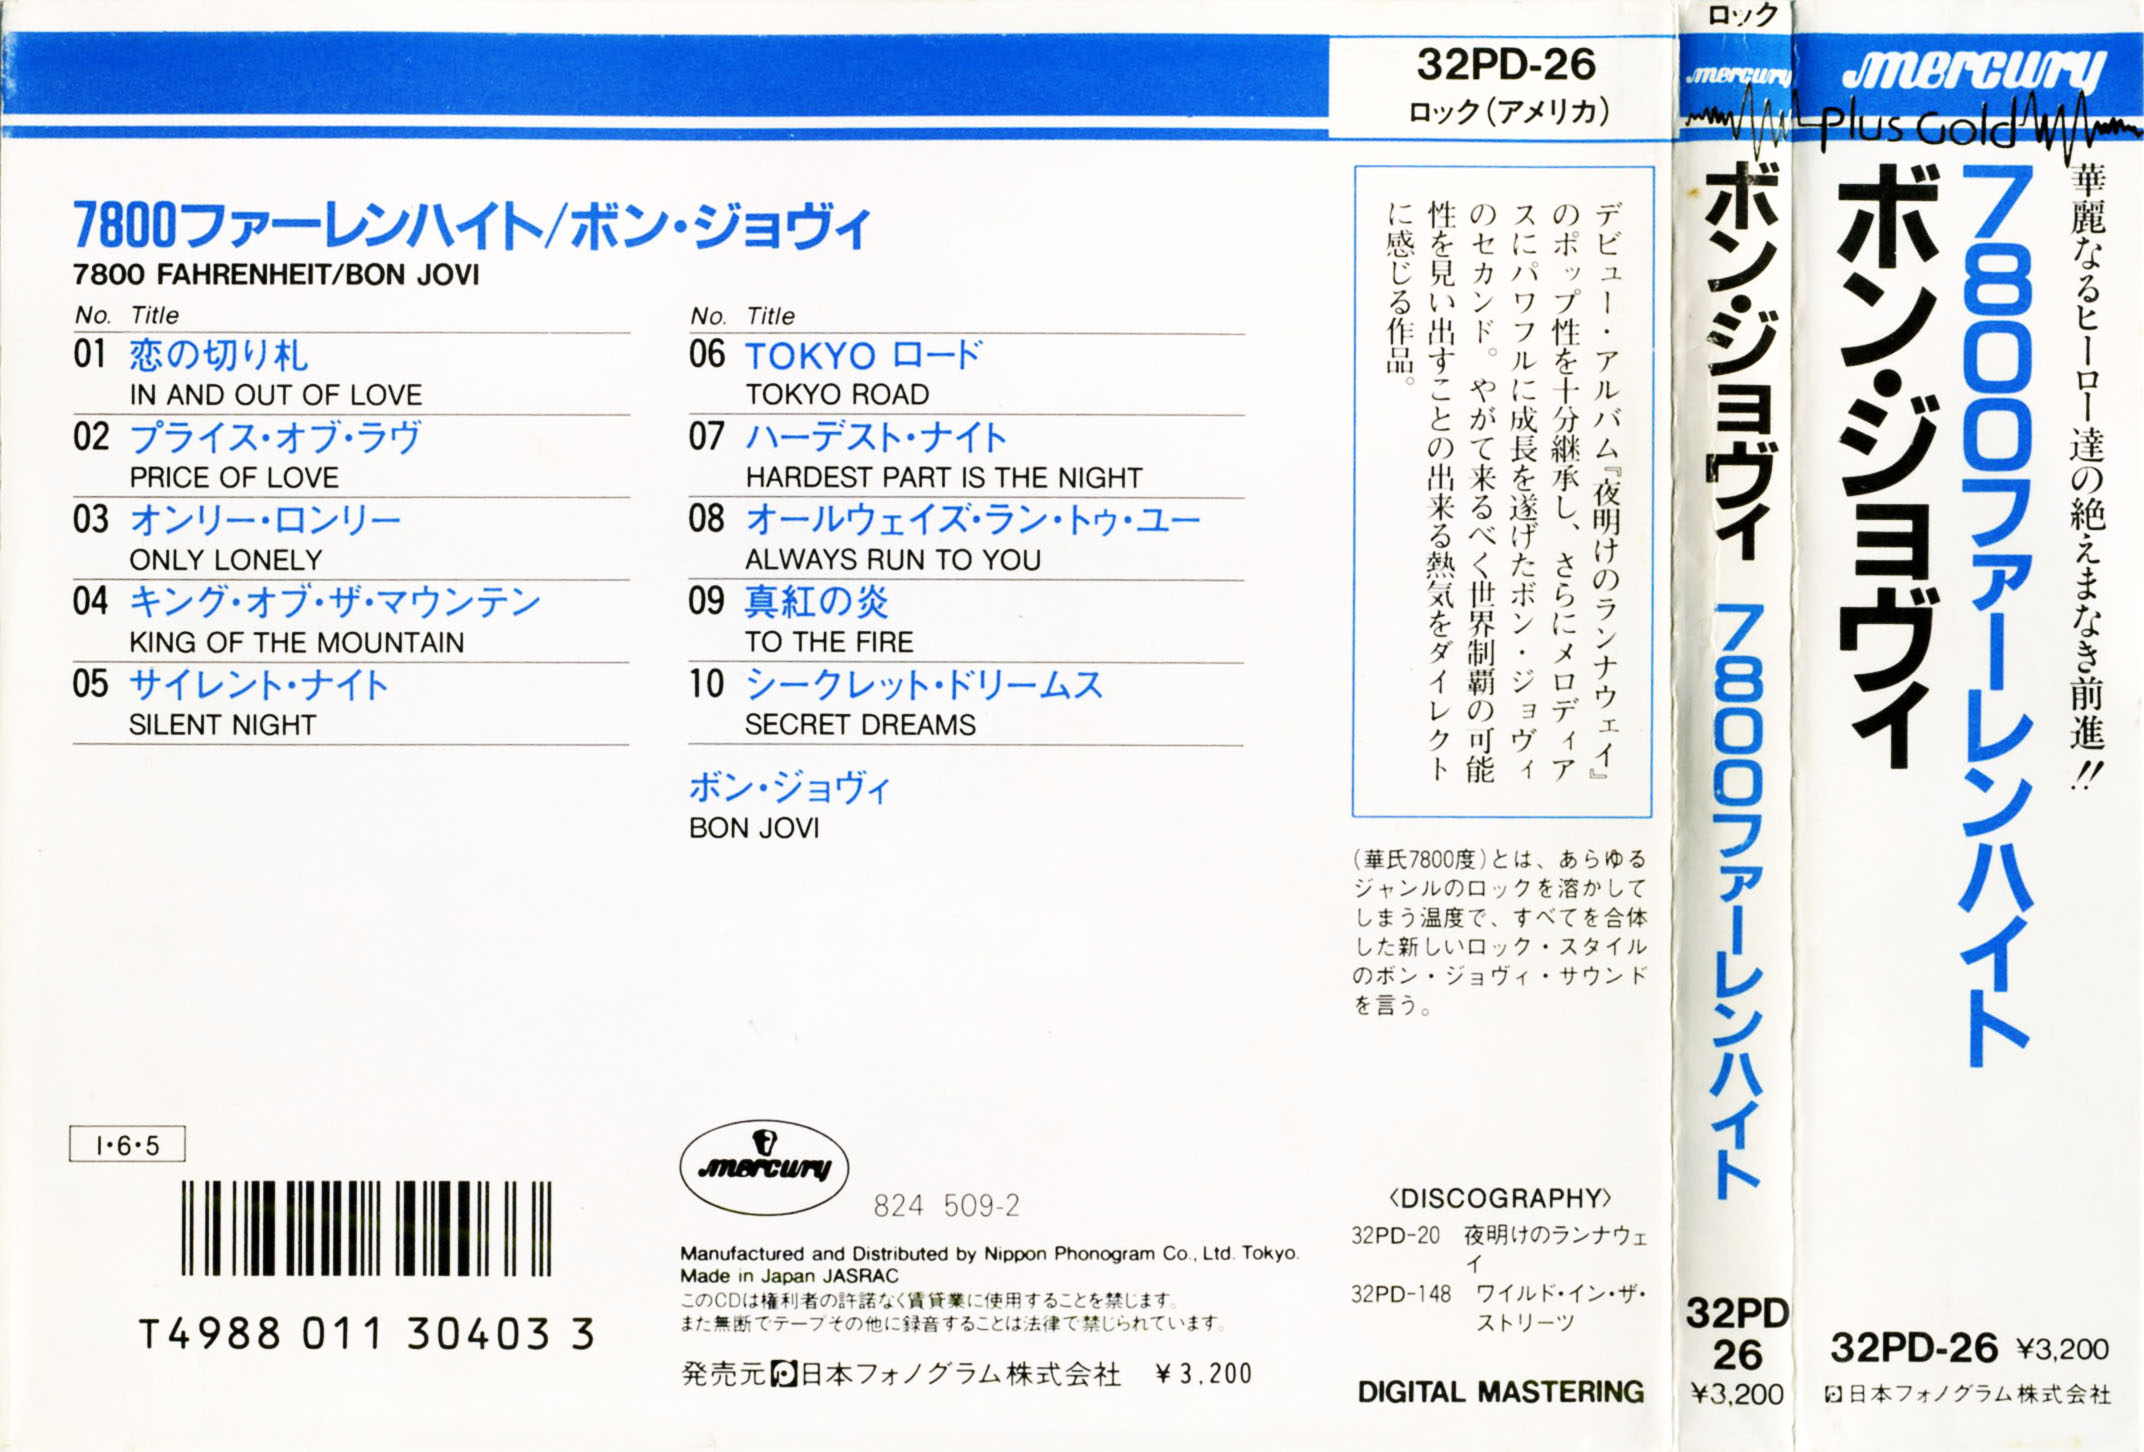 32PD-26
ロック(アメリカ)
7800ファーレンハイト/ボン・ジョヴィ
7800 FAHRENHEIT/BON JOVI
No. Title
01 恋の切り札
IN AND OUT OF LOVE
02 プライス・オブ・ラヴ
PRICE OF LOVE
03 オンリー・ロンリー
ONLY LONELY
04 キング・オブ・ザ・マウンテン
KING OF THE MOUNTAIN
05 サイレント・ナイト
SILENT NIGHT
No. Title
06 TOKYO ロード
TOKYO ROAD
07 ハーデスト・ナイト
HARDEST PART IS THE NIGHT
08 オールウェイズ・ラン・トゥ・ユー
ALWAYS RUN TO YOU
09 真紅の炎
TO THE FIRE
10 シークレット・ドリームス
SECRET DREAMS
ボン・ジョヴィ
BON JOVI
I・6・5
T4988 011 30403 3
mercury
824 509-2
Manufactured and Distributed by Nippon Phonogram Co., Ltd. Tokyo.
Made in Japan JASRAC
このCDは権利者の許諾なく賃貸業に使用することを禁じます。
また無断でテープその他に録音することは法律で禁じられています。
発売元 日本フォノグラム株式会社 ¥3,200
デビュー・アルバム『夜明けのランナウェイ』
のポップ性を十分継承し、さらにメロディア
スにパワフルに成長を遂げたボン・ジョヴィ
のセカンド。やがて来るべく世界制覇の可能
性を見い出すことの出来る熱気をダイレクト
に感じる作品。
(華氏7800度)とは、あらゆる
ジャンルのロックを溶かして
しまう温度で、すべてを合体
した新しいロック・スタイル
のボン・ジョヴィ・サウンド
を言う。
〈DISCOGRAPHY〉
32PD-20 夜明けのランナウェ
イ
32PD-148 ワイルド・イン・ザ・
ストリーツ
DIGITAL MASTERING
ロック
mercury
ボン・ジョヴィ 7800ファーレンハイト
32PD
26
¥3,200
mercury
plus Gold
華麗なるヒーロー達の絶えまなき前進!!
7800ファーレンハイト
ボン・ジョヴィ
32PD-26 ¥3,200
日本フォノグラム株式会社